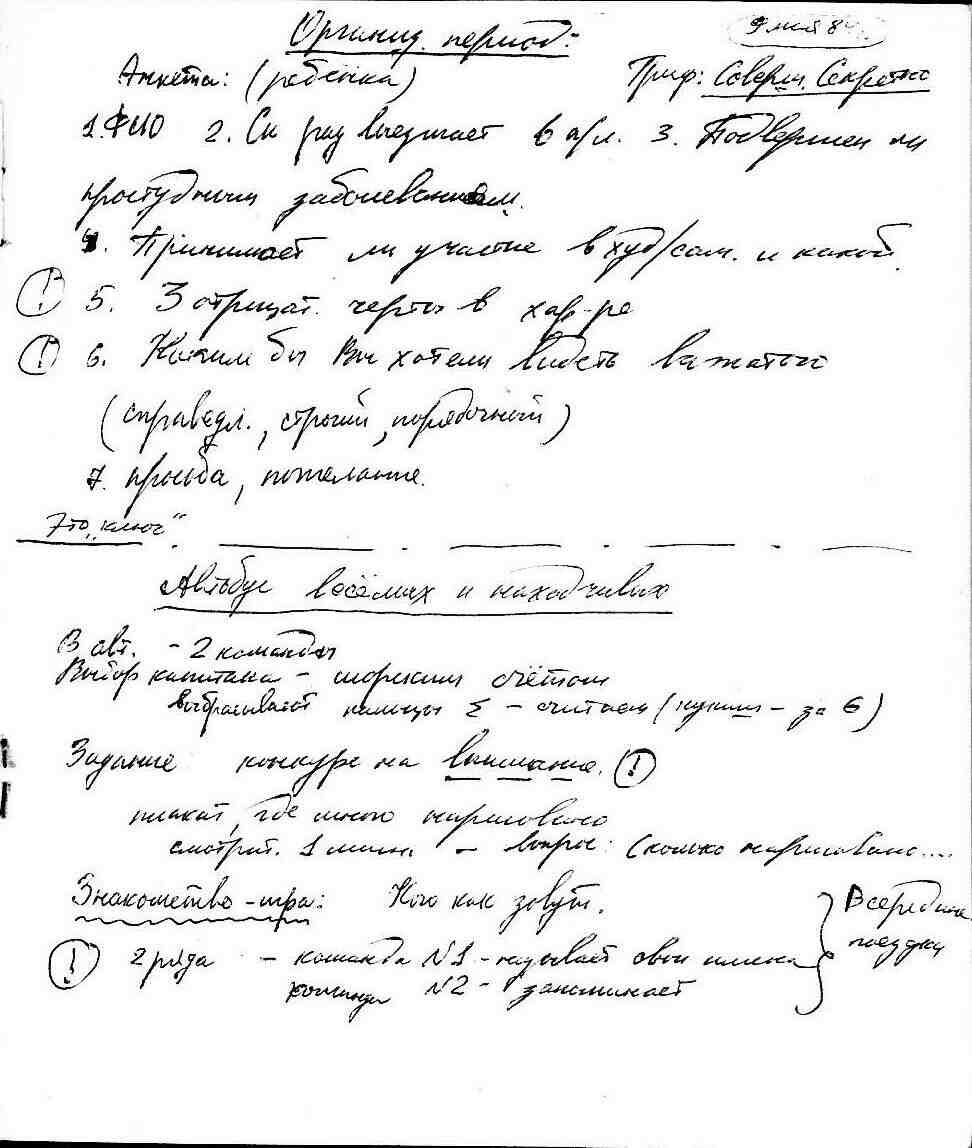 Организ. период: 9 мая 84
Анкета: (ребёнка) Гриф: Соверш. Секретно
1. ФИО 2. Ск. раз выезжает в п/л. 3. Подвержен ли
простудным заболеваниям.
4. Принимает ли участие в худ/сам. и какой.
(!) 5. 3 отрицат. черты в хар-ре
(!) 6. Каким бы Вы хотели видеть вожатого
(справедл., строгий, порядочный)
7. просьба, пожелание.
Это „ключ“
Автобус весёлых и находчивых
В авт. - 2 команды
Выбор капитана - морским счётом
выбрасывают пальцы Σ - считаем (кукиш - за 6)
Задание конкурс на внимание. (!)
плакат, где много нарисовано
смотрят. 1 мин - вопрос: Сколько нарисовано....
Знакомство-игра: Кого как зовут.
(!) 2 ряда - команда N1 - называет свои имена
команда N2 - запоминает
В середине
поездки